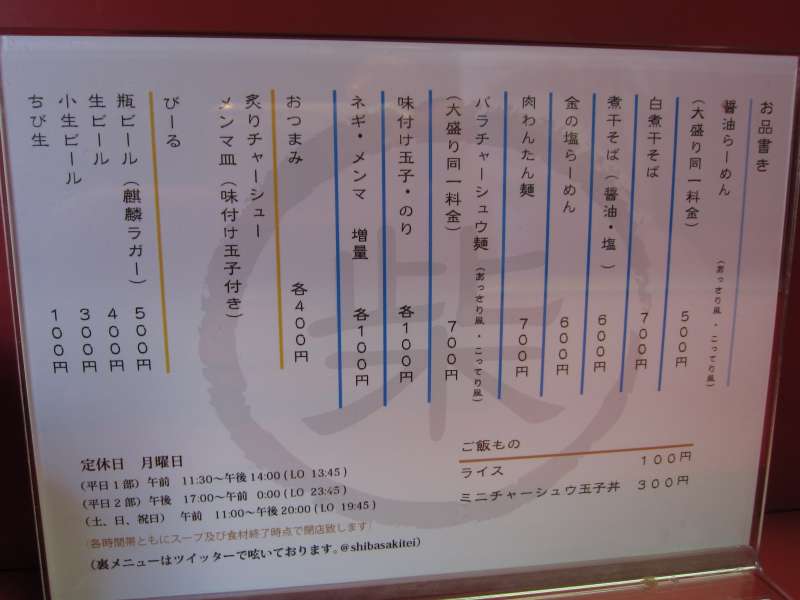 お品書き
醤油らーめん
(あっさり風・こってり風)
(大盛り同一料金) 500円
白煮干そば 700円
煮干そば(醤油・塩) 600円
金の塩らーめん 600円
肉わんたん麺 700円
バラチャーシュウ麺
(あっさり風・こってり風)
(大盛り同一料金) 700円
味付け玉子・のり 各100円
ネギ・メンマ 増量 各100円
おつまみ 各400円
炙りチャーシュー
メンマ皿(味付け玉子付き)
びーる
瓶ビール(麒麟ラガー) 500円
生ビール 400円
小生ビール 300円
ちび生 100円
ご飯もの
ライス 100円
ミニチャーシュウ玉子丼 300円
定休日 月曜日
(平日1部) 午前 11:30〜午後14:00 ( LO 13:45 )
(平日2部) 午後 17:00〜午前 0:00 ( LO 23:45 )
(土、日、祝日) 午前 11:00〜午後20:00 ( LO 19:45 )
(各時間帯ともにスープ及び食材終了時点で閉店致します)
(裏メニューはツイッターで呟いております。@shibasakitei)
柴